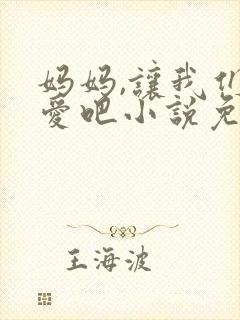 妈妈,讓我们
愛吧小説免
王海波